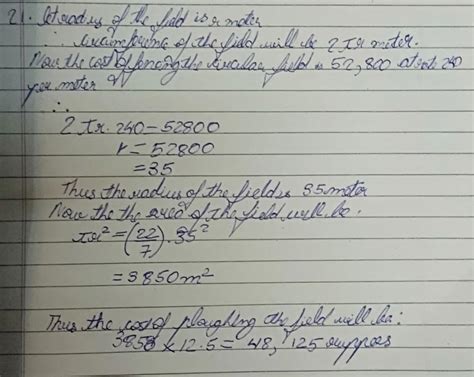 21. let radius of the field is r meter
∴ circumference of the field will be 2πr meter.
Now the cost of fencing the circular field is 52,800 at rate 240
per meter
∴
2πr. 240 = 52800
r = 52800
= 35
Thus the radius of the field is 35 meter
Now the the area of the field will be.
πr² = (22/7) . 35²
= 3850 m²
Thus the cost of ploughing the field will be:
3850 × 12.5 = 48, 125 ruppees